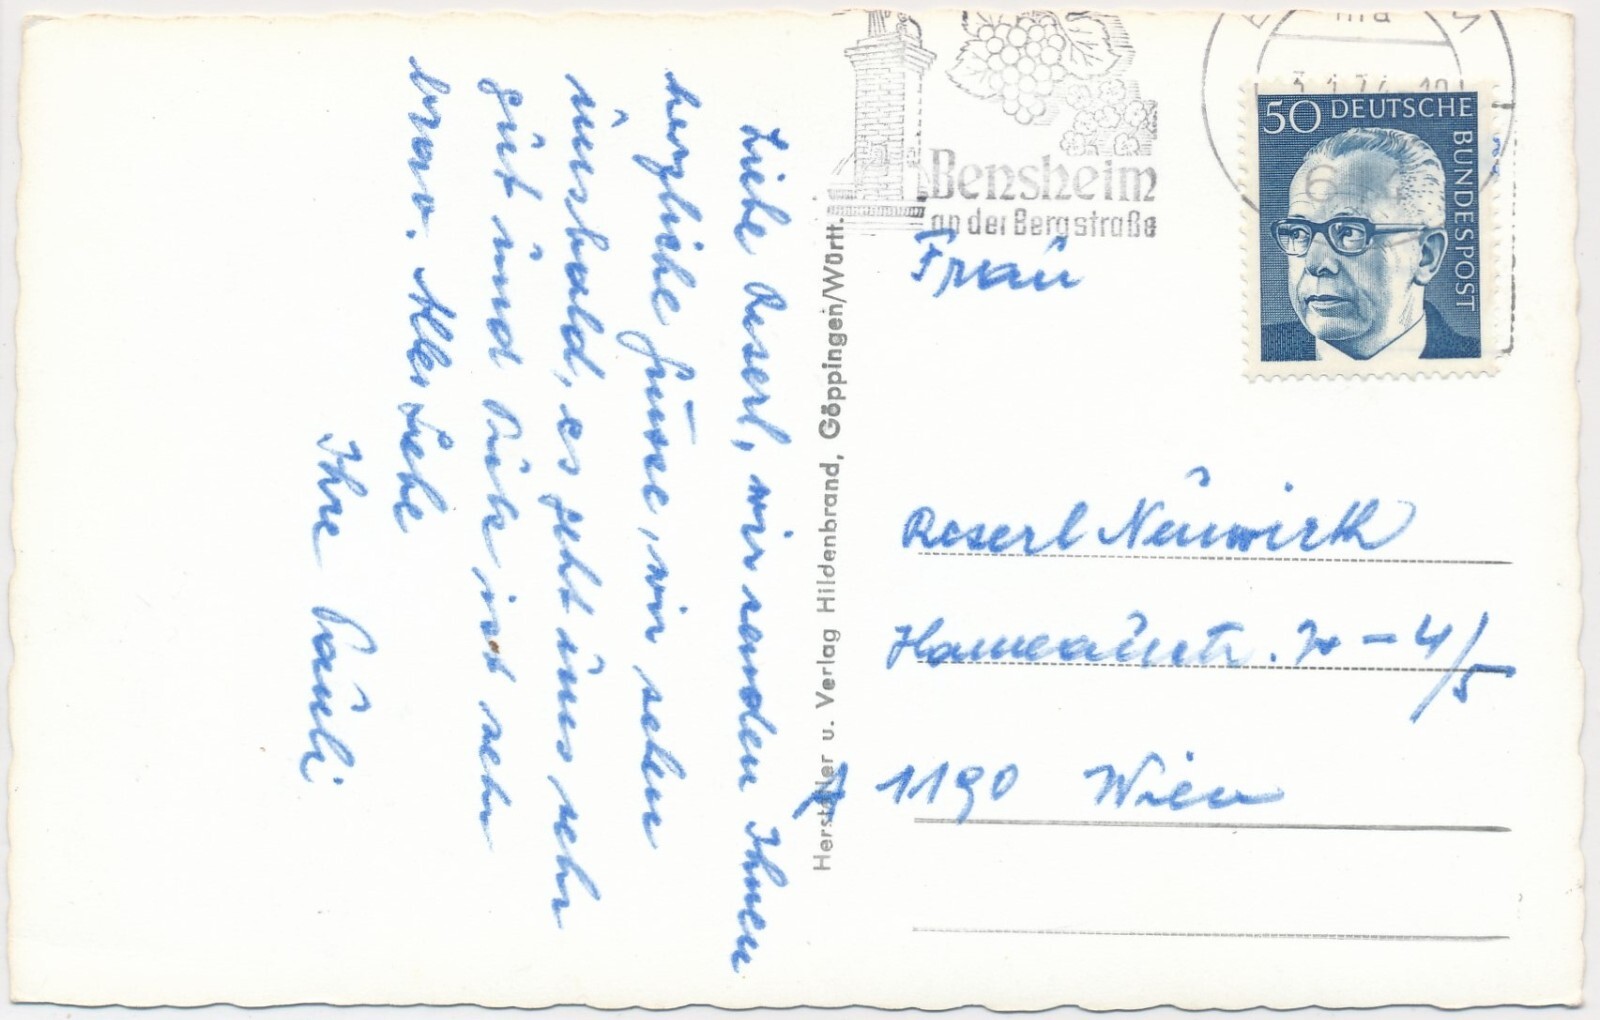 Liebe Reserl, wir senden Ihnen
herzliche Grüsse, wir sehen
uns bald, es geht uns sehr
gut und Rüle ist sehr
brav. Alles Liebe
Ihre Pauli
Hersteller u. Verlag Hildenbrand, Göppingen/Württ.
Bensheim
an der Bergstraße
3.1.74
50 DEUTSCHE
BUNDESPOST
Frau
Reserl Neuwirth
Hameaustr. - 4/5
A 1190 Wien